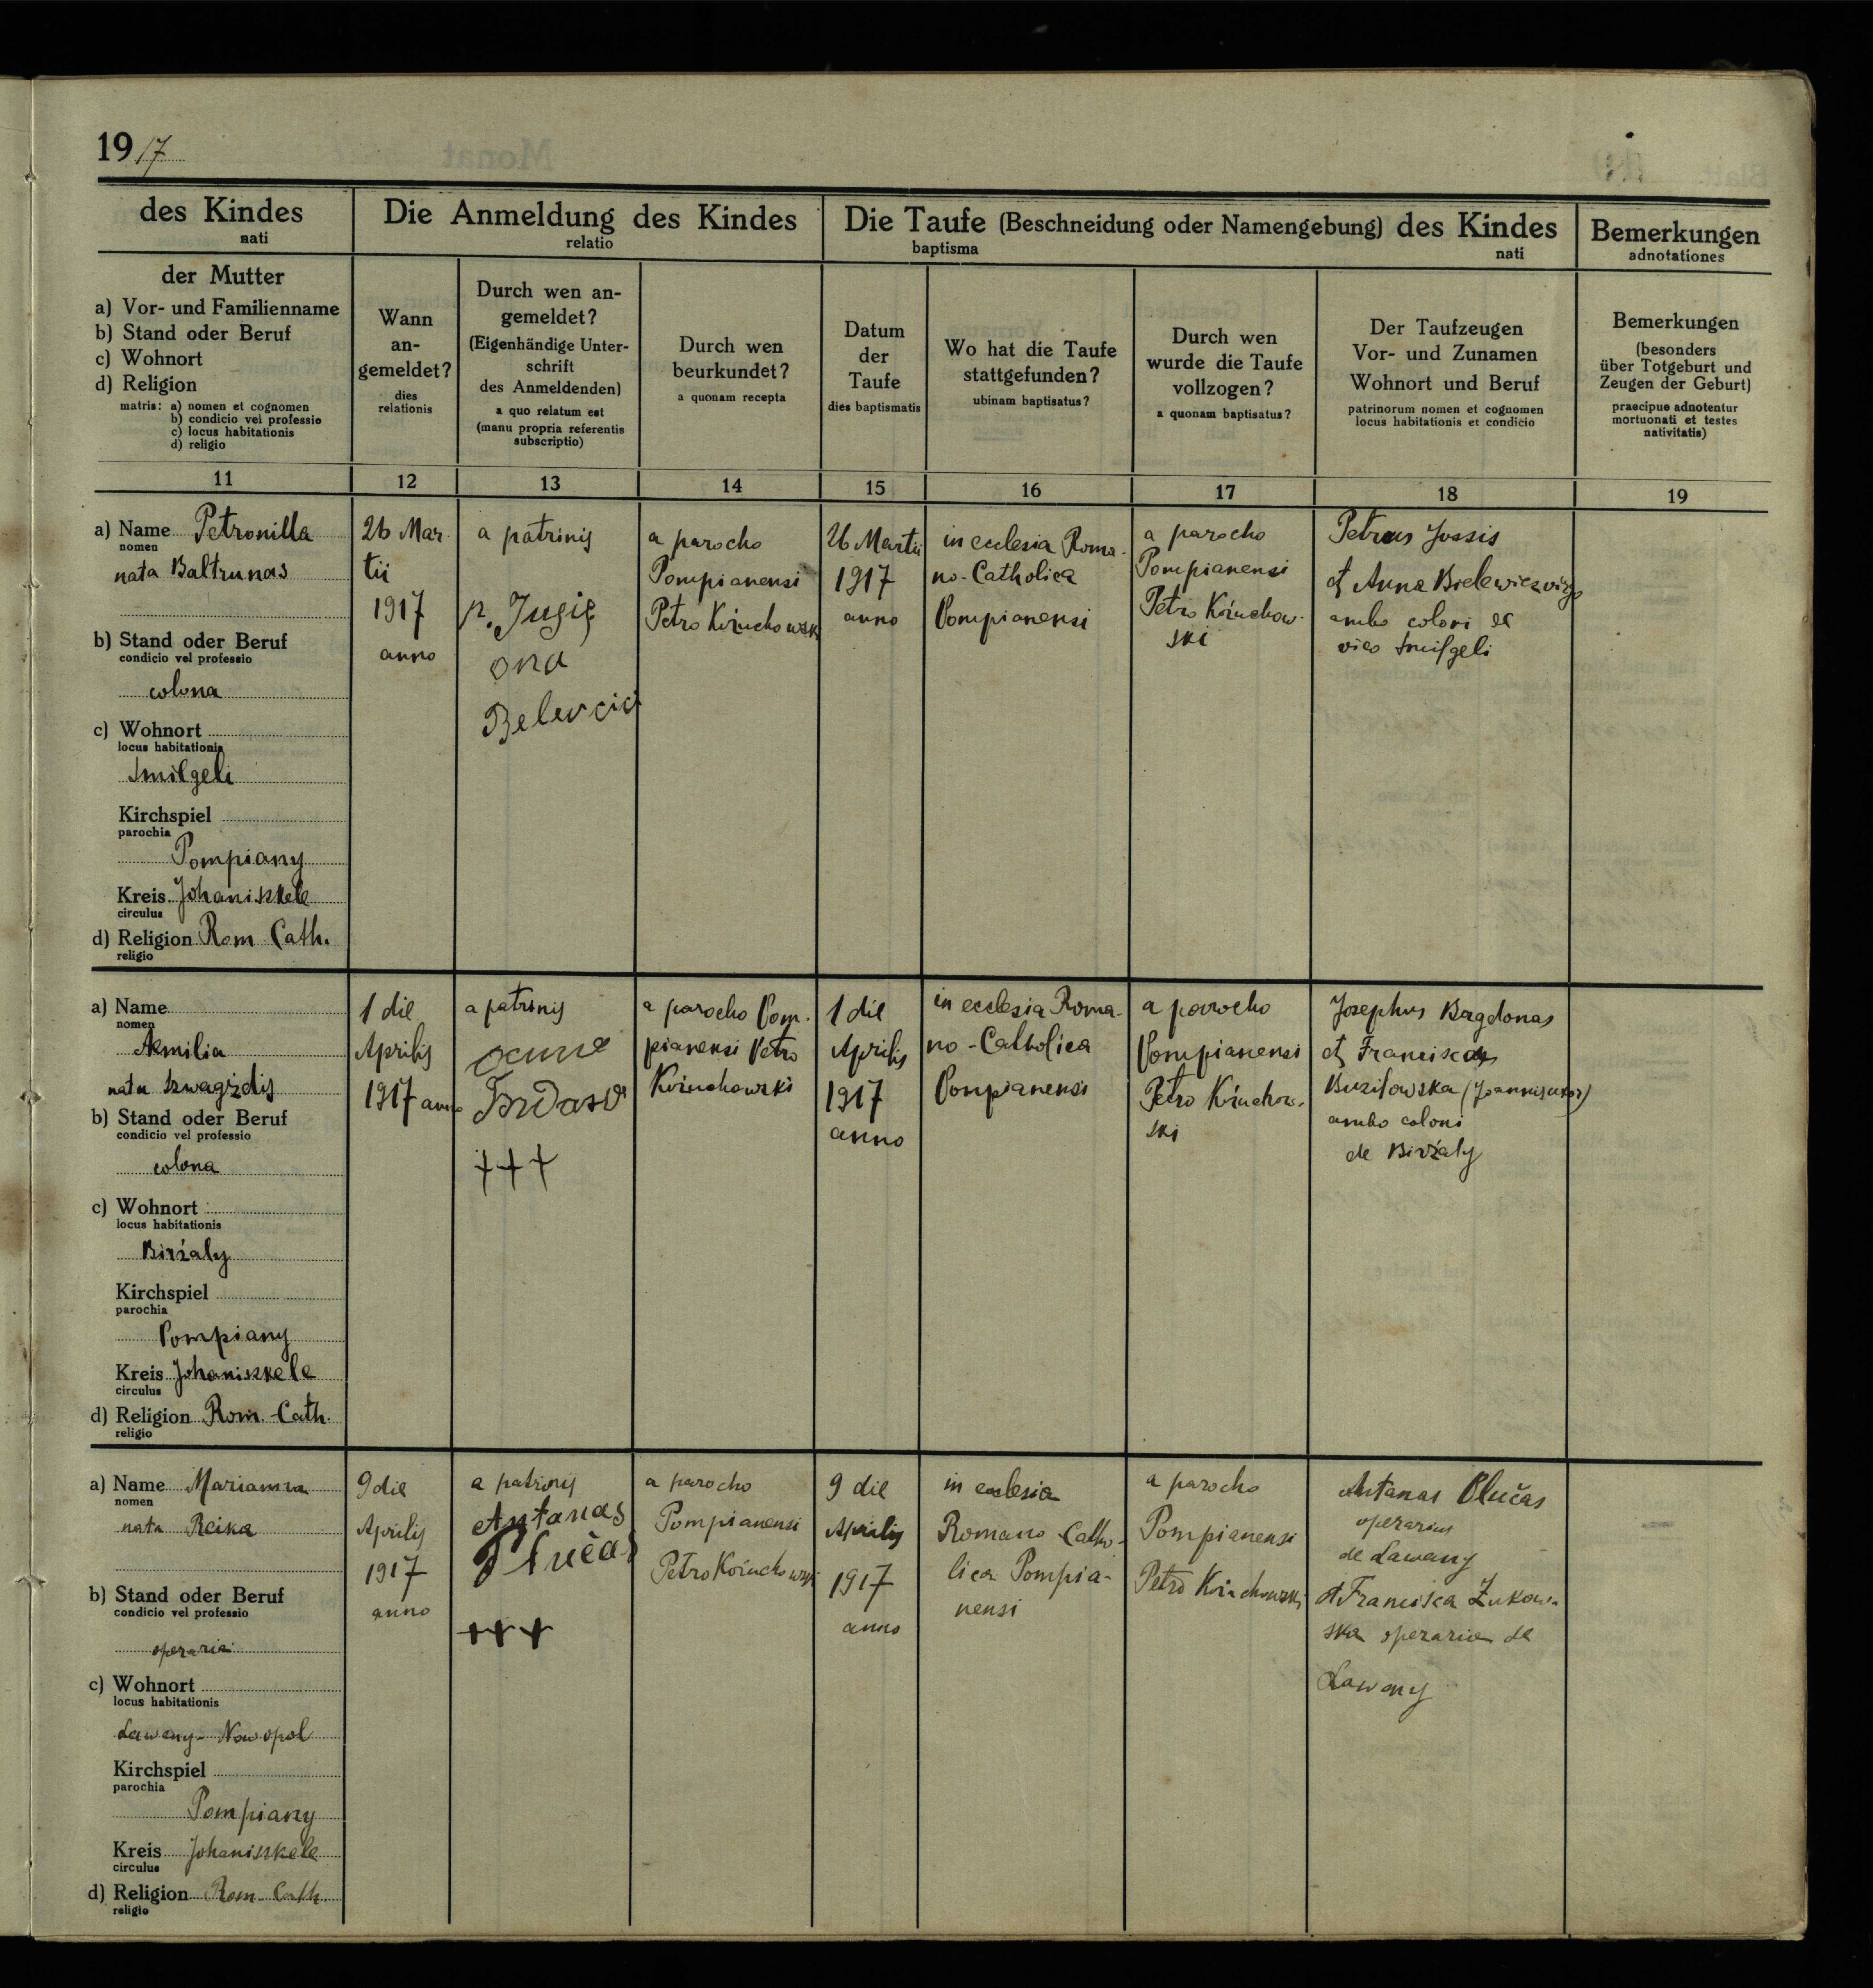 1917
des Kindes
nati
Die Anmeldung des Kindes
relatio
Die Taufe (Beschneidung oder Namengebung) des Kindes
baptisma nati
Bemerkungen
adnotationes
der Mutter
a) Vor- und Familienname
b) Stand oder Beruf
c) Wohnort
d) Religion
matris: a) nomen et cognomen
b) condicio vel professio
c) locus habitationis
d) religio
Wann
an-
gemeldet?
dies
relationis
Durch wen an-
gemeldet?
(Eigenhändige Unter-
schrift
des Anmeldenden)
a quo relatum est
(manu propria referentis
subscriptio)
Durch wen
beurkundet?
a quonam recepta
Datum
der
Taufe
dies baptismatis
Wo hat die Taufe
stattgefunden?
ubinam baptisatus?
Durch wen
wurde die Taufe
vollzogen?
a quonam baptisatus?
Der Taufzeugen
Vor- und Zunamen
Wohnort und Beruf
patrinorum nomen et cognomen
locus habitationis et condicio
Bemerkungen
(besonders
über Totgeburt und
Zeugen der Geburt)
praecipue adnotentur
mortuonati et testes
nativitatis)
11 12 13 14 15 16 17 18 19
a) Name Petronilla
nomen
nata Baltrunas
b) Stand oder Beruf
condicio vel professio
colona
c) Wohnort
locus habitationis
Smilgeli
Kirchspiel
parochia
Pompiany
Kreis Johaniskele
circulus
d) Religion Rom Cath.
religio
26 Mar-
tii
1917
anno
a patrinis
p. Jusis
ona
a parocho
Pompianensi
Petro Koźuchowski
26 Martii
1917
anno
in ecclesia Roma-
no-Catholica
Pompianensi
a parocho
Pompianensi
Petro Koźuchow-
ski
Petrus Jussis
et Anna
ambo coloni de
vico Smilgeli
a) Name
nomen
Aemilia
nata Szwagżdis
b) Stand oder Beruf
condicio vel professio
colona
c) Wohnort
locus habitationis
Birżaly
Kirchspiel
parochia
Pompiany
Kreis Johaniskele
circulus
d) Religion Rom. Cath.
religio
1 die
Aprilis
1917 anno
a patrinis
+++
a parocho Pom-
pianensi Petro
Koźuchowski
1 die
Aprilis
1917
anno
in ecclesia Roma-
no-Catholica
Pompianensi
a parocho
Pompianensi
Petro Koźuchow-
ski
Josephus Bagdonas
et Francisca
(Joannis uxor)
ambo coloni
de Birżaly
a) Name Marianna
nomen
nata Reika
b) Stand oder Beruf
condicio vel professio
operaria
c) Wohnort
locus habitationis
Lawany-Nowopol
Kirchspiel
parochia
Pompiany
Kreis Johaniskele
circulus
d) Religion Rom. Cath.
religio
9 die
Aprilis
1917
anno
a patrinis
Antanas
Plučas
+++
a parocho
Pompianensi
Petro Koźuchowski
9 die
Aprilis
1917
anno
in ecclesia
Romano Catho-
lica Pompia-
nensi
a parocho
Pompianensi
Petro Koźuchowski
Antanas Plučas
operarius
de Lawany
et Francisca Żukow-
ska operaria de
Lawany